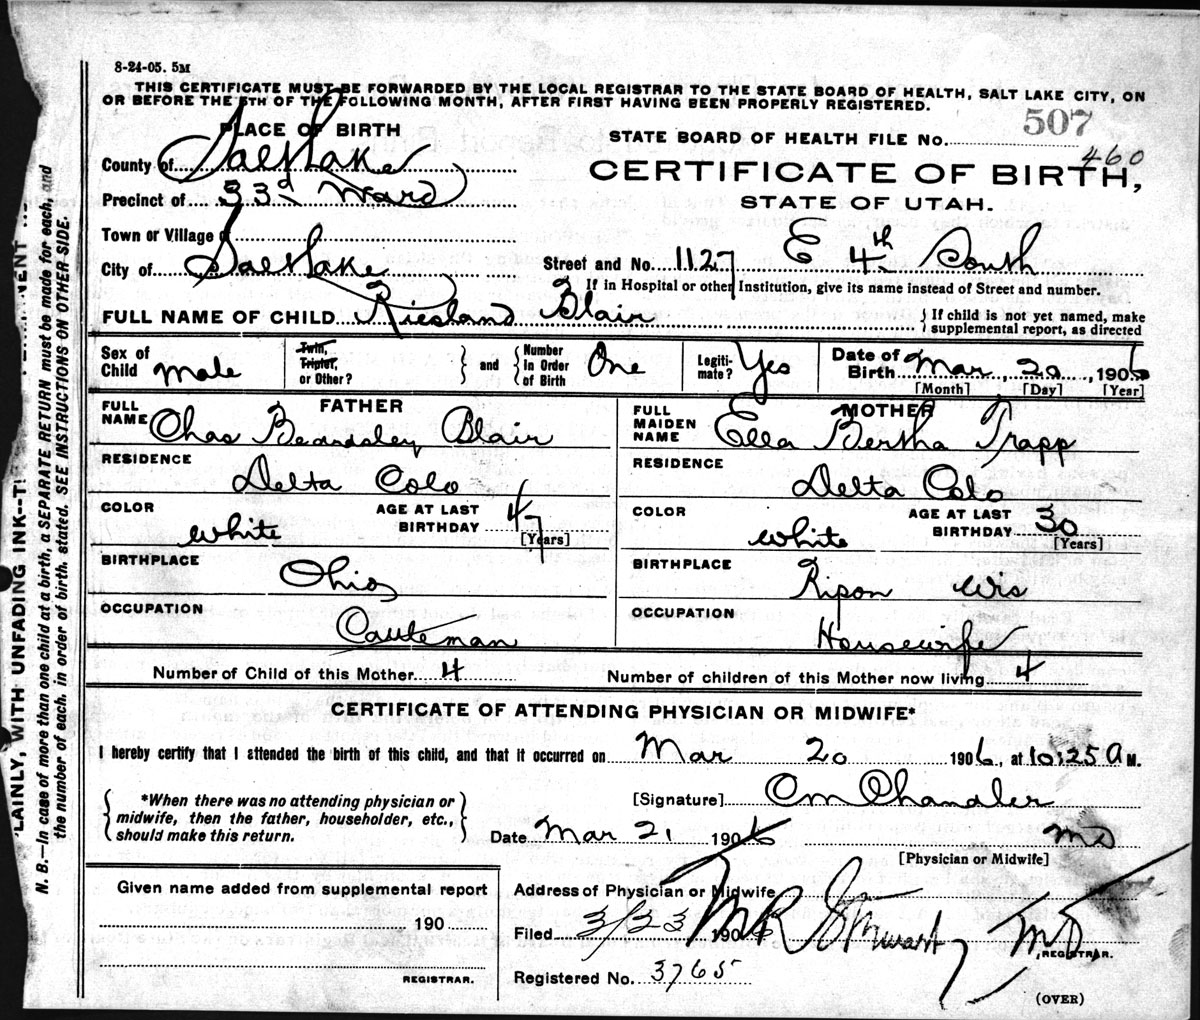 8-24-05. 5M
THIS CERTIFICATE MUST BE FORWARDED BY THE LOCAL REGISTRAR TO THE STATE BOARD OF HEALTH, SALT LAKE CITY, ON
OR BEFORE THE 5TH OF THE FOLLOWING MONTH, AFTER FIRST HAVING BEEN PROPERLY REGISTERED.
PLACE OF BIRTH
STATE BOARD OF HEALTH FILE No. 507
460
County of Salt Lake
CERTIFICATE OF BIRTH,
Precinct of 33d Ward
STATE OF UTAH.
Town or Village of
City of Salt Lake
Street and No. 1127 E 4th South
If in Hospital or other Institution, give its name instead of Street and number.
FULL NAME OF CHILD Blair
If child is not yet named, make
supplemental report, as directed
Sex of Child Male
Twin, Triplet, or Other?
and
Number In Order of Birth One
Legitimate? Yes
Date of Birth Mar, 20, 1906
[Month] [Day] [Year]
FATHER
FULL NAME Chas Beardsley Blair
MOTHER
FULL MAIDEN NAME Ella Bertha Trapp
RESIDENCE Delta Colo
RESIDENCE Delta Colo
COLOR White
AGE AT LAST BIRTHDAY 47
[Years]
COLOR White
AGE AT LAST BIRTHDAY 30
[Years]
BIRTHPLACE Ohio
BIRTHPLACE Ripon Wis
OCCUPATION Cattleman
OCCUPATION Housewife
Number of Child of this Mother 4
Number of children of this Mother now living 4
CERTIFICATE OF ATTENDING PHYSICIAN OR MIDWIFE*
I hereby certify that I attended the birth of this child, and that it occurred on Mar 20 1906, at 10:25 A M.
*When there was no attending physician or
midwife, then the father, householder, etc.,
should make this return.
[Signature] C M Chandler
Date Mar 21 1906 MD
[Physician or Midwife]
Given name added from supplemental report
190
REGISTRAR.
Address of Physician or Midwife
Filed 3/23 1906 Stewart, MD
REGISTRAR.
Registered No. 3765
(OVER)
N. B.—In case of more than one child at a birth, a SEPARATE RETURN must be made for each, and
the number of each, in order of birth, stated. SEE INSTRUCTIONS ON OTHER SIDE.
LAINLY, WITH UNFADING INK--T